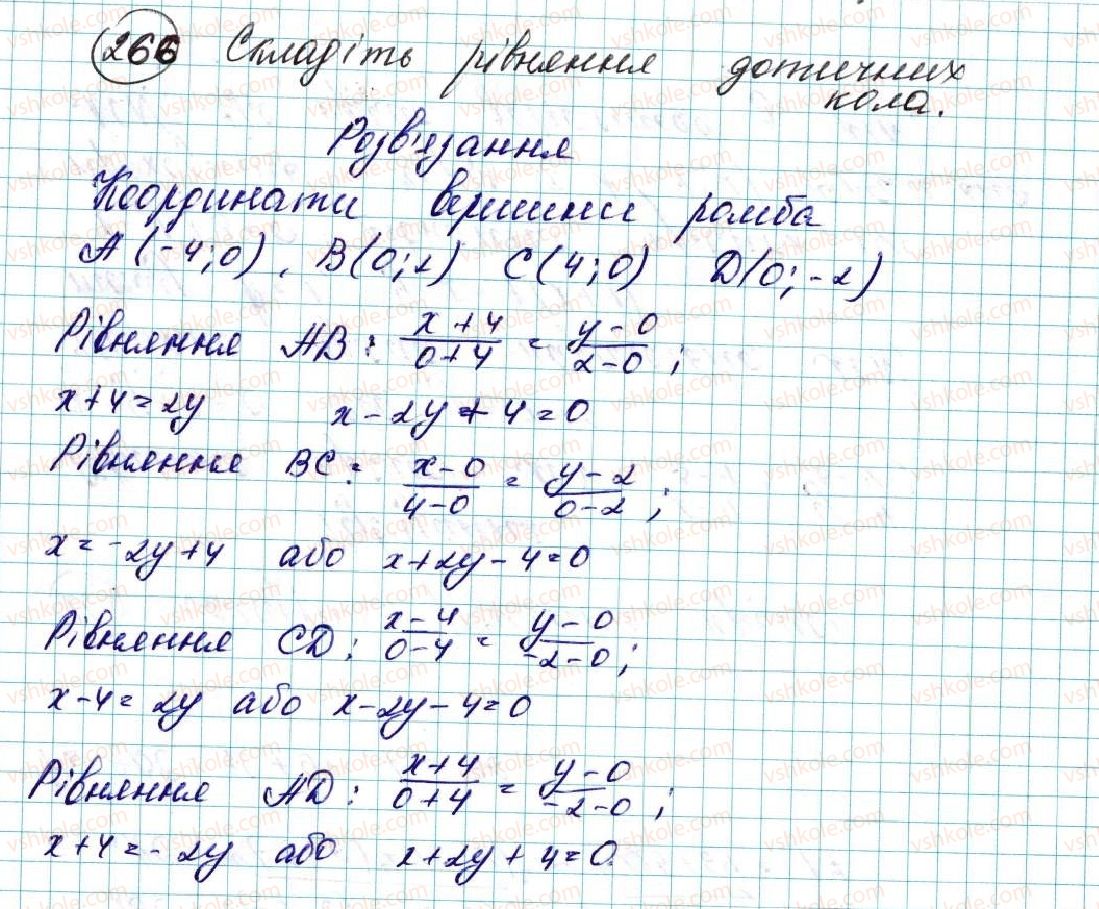 266 Складіть рівняння дотичних
кола.
Розв'язання
Координати вершини ромба
A(-4;0), B(0;2) C(4;0) D(0;-2)
Рівняння AB: (x+4)/(0+4) = (y-0)/(2-0);
x+4=2y x-2y+4=0
Рівняння BC: (x-0)/(4-0) = (y-2)/(0-2);
x=-2y+4 або x+2y-4=0
Рівняння CD: (x-4)/(0-4) = (y-0)/(-2-0);
x-4=2y або x-2y-4=0
Рівняння AD: (x+4)/(0+4) = (y-0)/(-2-0);
x+4=-2y або x+2y+4=0